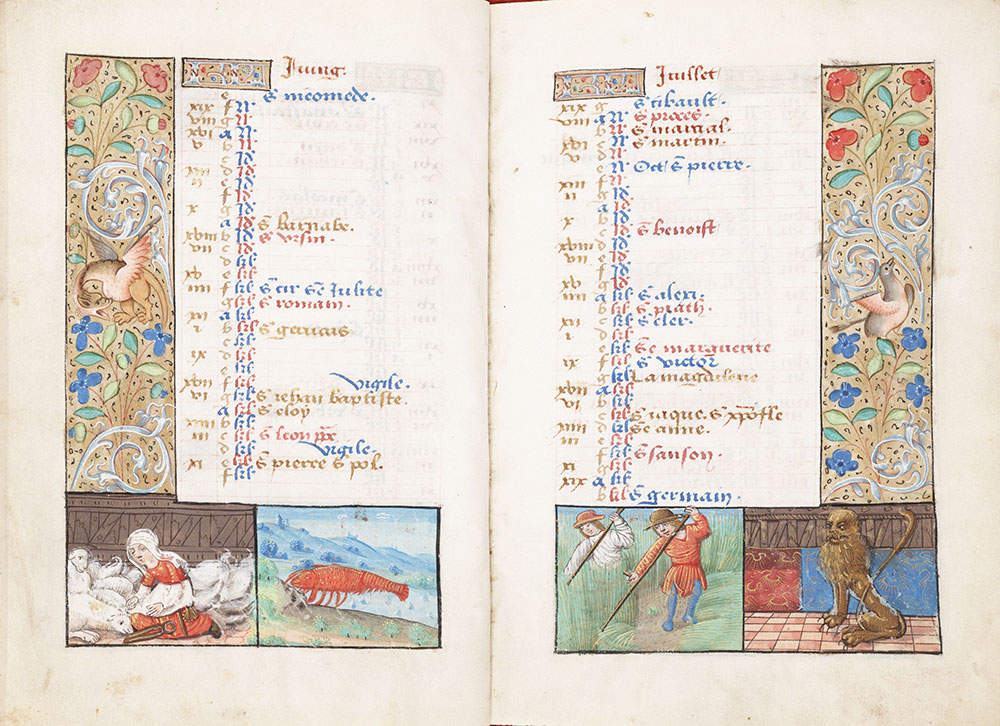 Juing.
e S nicomede.
xix f N
viii g N
xvi a N
v b N
c Id
xiii d Id
ii e Id
f Id
x g Id
a Id S barnabe.
xviii b Id S ursin.
vii c Id
d kl
xv e kl
iiii f kl S cir Se Julite
g kl S romain.
xii a kl
i b kl S gervais
c kl
ix d kl
e kl
xvii f kl Vigile.
vi g kl S jehan baptiste.
a kl S eloy
xiiii b kl
iii c kl S leon ppe
d kl Vigile.
xi e kl S pierre S pol.
f kl
Juisset
xix g S tibault.
viii a N S proces.
b N S martial.
xvi c N S martin.
v d N
e N Oct S pierre.
xiii f N
ii g Id
a Id
x b Id
c Id S benoist
xviii d Id
vii e Id
f Id
xv g Id
iiii a kl S alexi:
b kl S
xii c kl S cler.
i d kl
e kl Se marguerite
ix f kl S victor
g kl La magdalene
xvii a kl
vi b kl
c kl S jaque. S xpofle
xiiii d kl Se anne.
iii e kl
f kl S sanson.
xi g kl
xix a kl
b kl S germain.